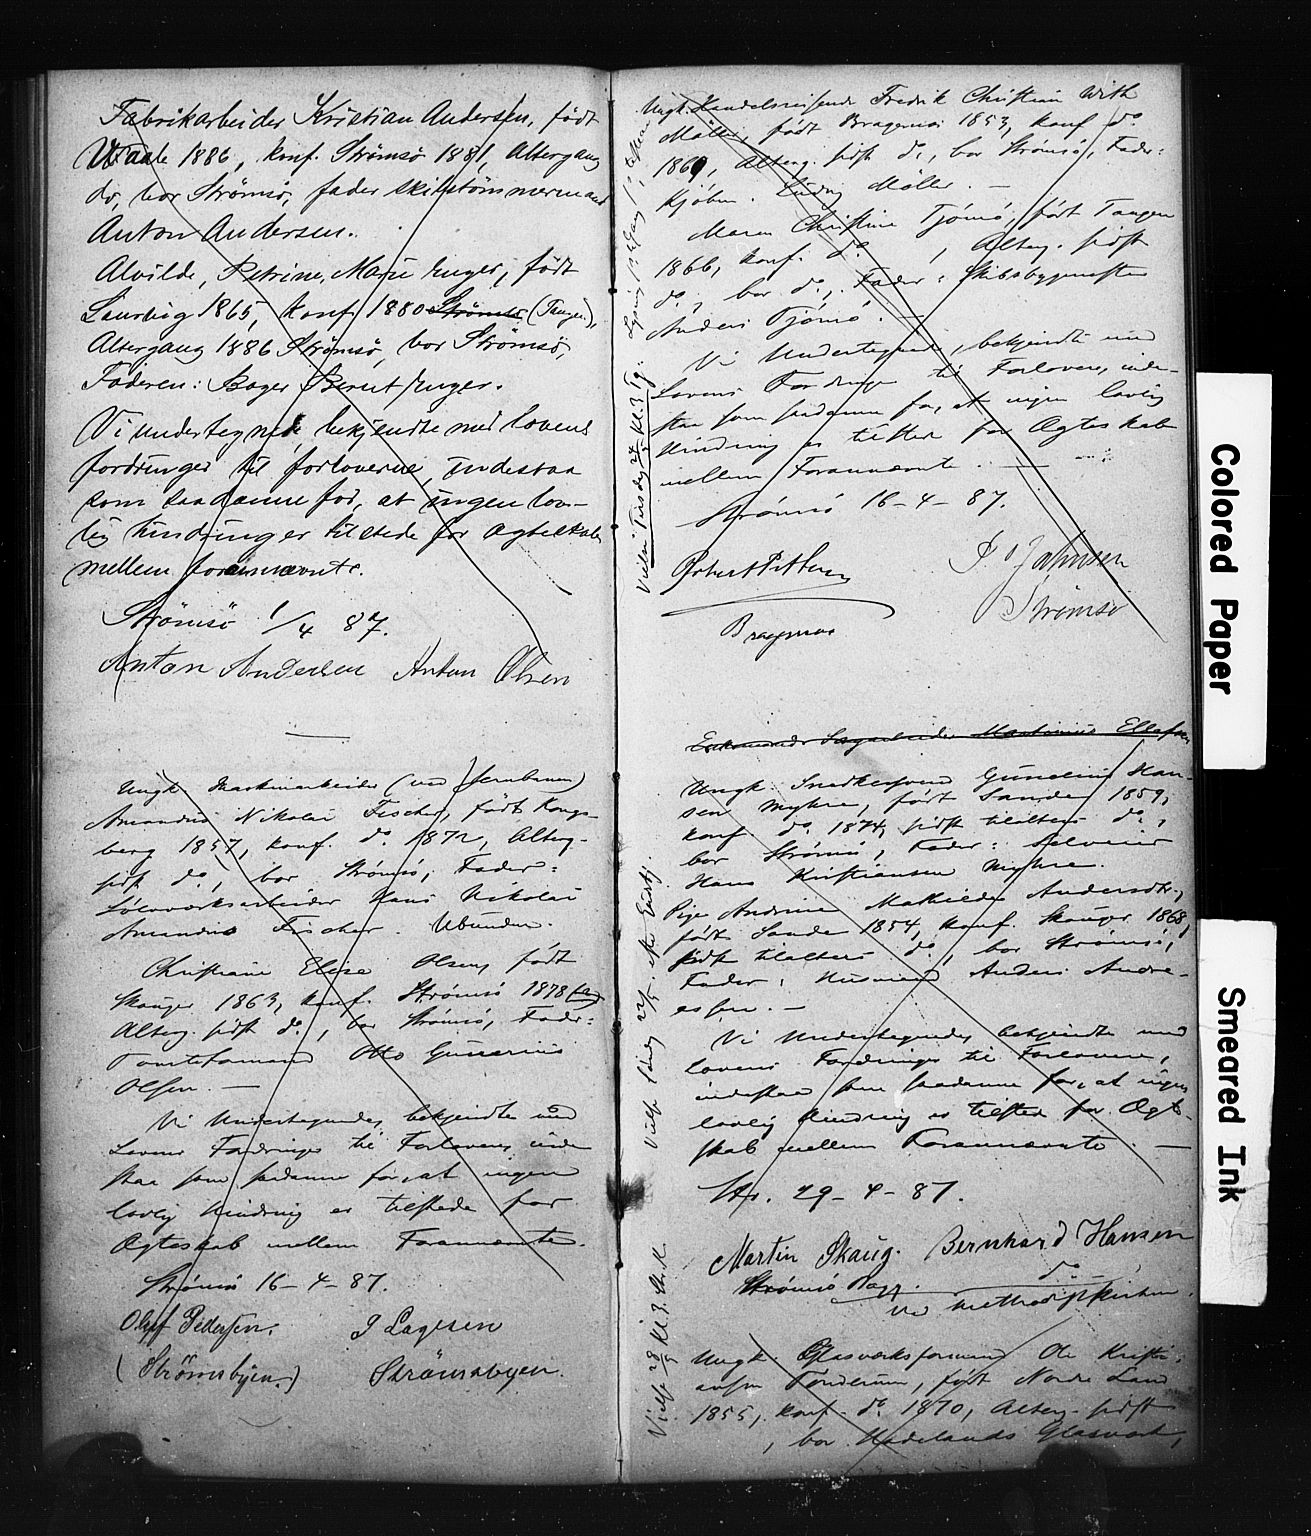 Fabrikarbeider Kristian Andersen, født
Waale 1886, konf. Strømsø 1881, Altergang
do, bor Strømsø, fader skibstømmermand
Anton Andersen.
Alvilde, Petrine, Marie Unger, født
Laurvig 1865, konf. 1880 Strømsø (Tangen),
Altergang 1886 Strømsø, bor Strømsø,
Faderen: Bager Bernt Unger.
Vi undertegnede bekjendte med lovens
fordringer til forloverne, indestaa
som saadanne for, at ingen lov-
lig hindring er tilstede for Ægteskab
mellem forannævnte.
Strømsø 1/4 87.
Anton Andersen Anton Olsen
Ungk. Maskinarbeider (ved Jernbanen)
Amandus Nikolai Fischer, født Kongs-
berg 1857, konf. do. 1872, Alterg.
sidst do, bor Strømsø, Fader:
Sølvværksarbeider Hans Nikolai
Amandus Fischer. Ubunden.
Christiane Elise Olsen, født
Skouger 1863, konf. Strømsø 1878
Alterg. sidst do., bor Strømsø, Fader:
Tomteformand Otto Gunerius
Olsen. —
Vi Undertegnede, bekjendte med
Lovens Fordringer til Forlovere, inde
staa som saadanne for, at ingen
lovlig Hindring er tilstede for
Ægteskab mellem Forannævnte.
Strømsø 16-4-87.
Oluf Pedersen. J Lagesen
(Strømsbyen.) Strømsbyen.
Ungk. Handelsreisende Fredrik Christian With
Møller, født Bragernæs 1853, konf. do
1869, Alterg. sidst do., bor Strømsø, Fader:
Kjøbm. Ludvig Møller. —
Maren Christine Tjømø, født Tangen
1866, konf. do. , Alterg. sidst
do., bor do., Fader: Skibsbygmester
Anders Tjømø. —
Vi Undertegnede, bekjendte med
Lovens Fordringer til Forlovere, inde-
staa som saadanne for, at ingen lovlig
Hindring er tilsted for Ægteskab
mellem Forannævnte. —
Strømsø 16-4-87.
Robert Pettersen
Bragernæs
Johnsen
Strømsø
Viede Tirsdag 24/5 Kl. 3 Tg.
Sagarbeider Martinius Ellefsen
Ungk. Snedkersvend Gunelius Han-
sen Myhre, født Sande 1859,
konf. do. 1874, sidst tilalters do.,
bor Strømsø, Fader: Selveier
Hans Kristiansen Myhre.
Pige Andrine Mathilde Andersdtr.,
født Sande 1854, konf. Skouger 1868,
sidst tilalters do., bor Strømsø,
Fader: Husmand Anders Andre-
assen. —
Vi Undertegnede, bekjendte med
Lovens Fordringer til Forlovere,
indestaa som saadanne for, at ingen
lovlig Hindring er tilsted for Ægte-
skab mellem Forannævnte. —
Str. 29-4-87.
Martin Skaug. Bernhard Hansen
Strømsø do
ved Methodistkirken.
Ungk. Glasværksformand Ole Kristi-
ansen Tonderum, født Nordre Land
1855, konf. do. 1870, Alterg. sidst
, bor Hadelands Glasværk,
Viede 28/5 Kl. 3. Str. K.
Colored Paper
Smeared Ink